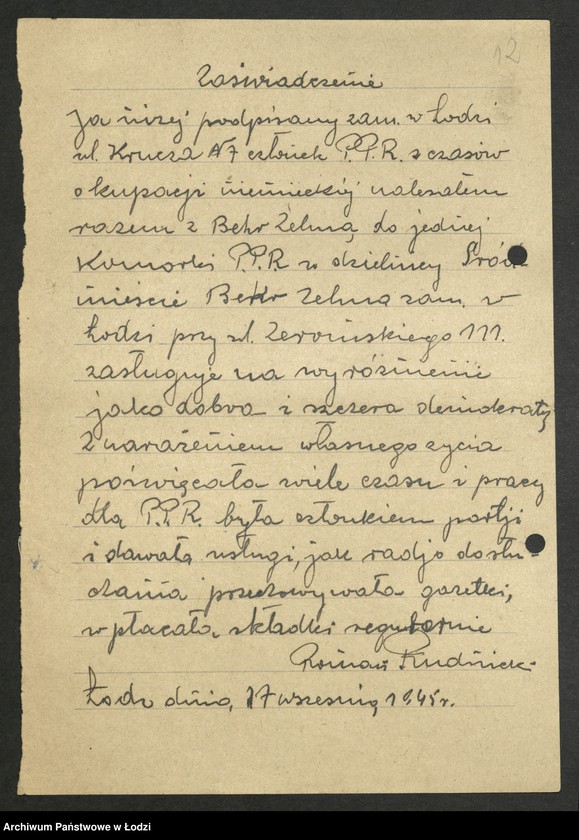 12
Zaświadczenie
Ja niżej podpisany zam. w Łodzi
ul. Krucza N7 członek P.P.R. z czasów
okupacji niemieckiej należałem
razem z Behr Zelmą do jednej
Komorki P.P.R. w dzielnicy Śród-
mieście Behr Zelma zam. w
Łodzi przy ul. Żeromskiego 111.
zasługuje na wyróżnienie
jako dobra i szczera demokratę
z narażeniem własnego życia
poświęcała wiele czasu i pracy
dla P.P.R. była członkiem partji
i dawała usługi, jak radjo do słu-
chania przechowywała gazetki,
wpłacała składki regularnie
Roman Rudnicki
Łodz dnia, 17 wrzesnia 1945 r.
Archiwum Państwowe w Łodzi